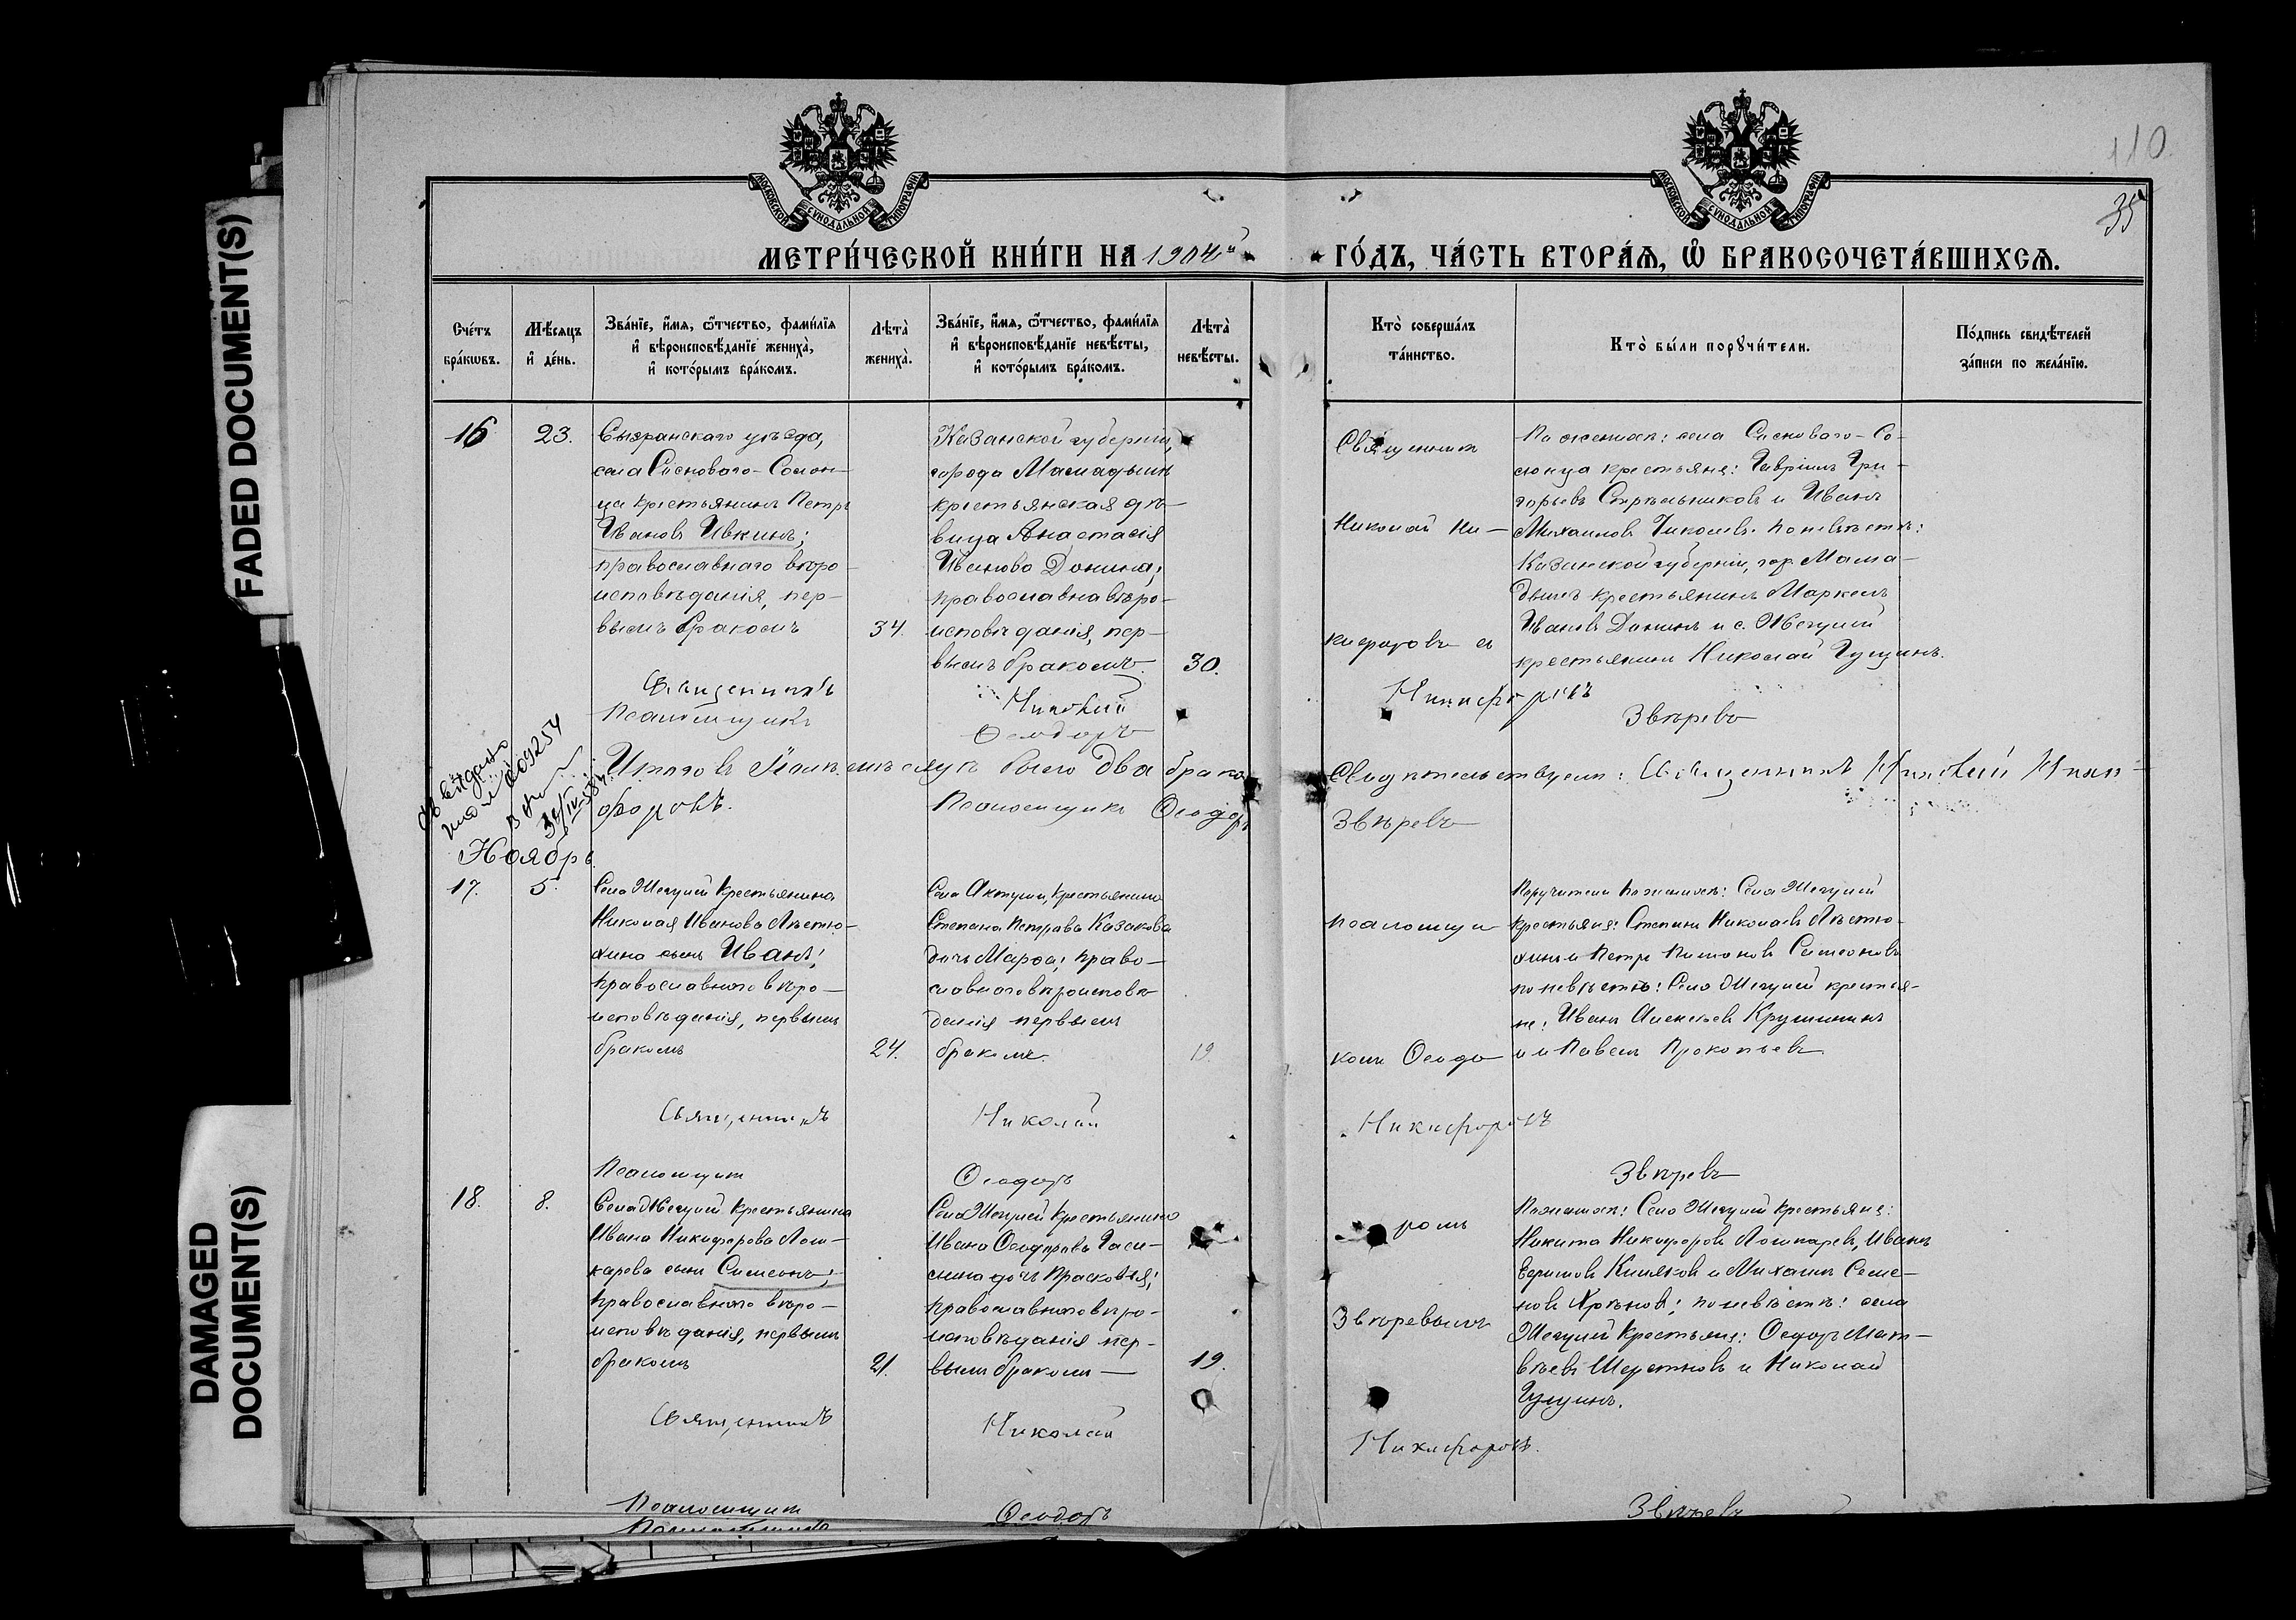 FADED DOCUMENT(S)
DAMAGED
DOCUMENT(S)
110.
35
МОСКОВСКОЙ СѴНОДАЛЬНОЙ ТИПОГРАФІИ
МОСКОВСКОЙ СѴНОДАЛЬНОЙ ТИПОГРАФІИ
МЕТРИ́ЧЕСКОЙ КНИ́ГИ НА 1904й ГО́ДЪ, ЧА́СТЬ ВТОРА́Я, Ѡ҆ БРАКОСОЧЕТА́ВШИХСѦ.
Сче́тъ
бра́кѡвъ.
Мѣ́сяцъ
и҆ де́нь.
Зва́нїе, и҆́мѧ, ѻ҆́тчество, фами́лїя
и҆ вѣроисповѣ́данїе жениха̀,
и҆ кото́рымъ бра́комъ.
Лѣта̀
жениха̀.
Зва́нїе, и҆́мѧ, ѻ҆́тчество, фами́лїя
и҆ вѣроисповѣ́данїе невѣ́сты,
и҆ кото́рымъ бра́комъ.
Лѣта̀
невѣ́сты.
Кто̀ соверша́лъ
та́инство.
Кто̀ бы́ли порꙋчи́тели.
По́дпись свидѣ́телей
за́писи по жела́нїю.
16
23.
Сызранскаго уѣзда,
села Сосноваго-Солон-
ца крестьянинъ Петръ
Ивановъ Ивкинъ;
православнаго вѣро-
исповѣданія, пер-
вымъ бракомъ
34.
Казанской губерніи,
города Мамадышъ
крестьянская дѣ-
вица Анастасія
Иванова Донина;
православна вѣро-
исповѣданія, пер-
вымъ бракомъ
30.
Священник
Николай Ни-
кифоровъ съ
По женихѣ: села Сосноваго-Со-
лонца крестьяне: Гавріилъ Гри-
горьевъ Стрѣльниковъ и Иванъ
Михаиловъ Чиколевъ. По невѣстѣ:
Казанской губерніи, гор. Мама-
дышъ крестьянинъ Маркелъ
Ивановъ Донинъ и с. Жегулей
крестьянинъ Николай Гущинъ.
Священникъ Николай Никифоровъ
Псаломщикъ Ѳеодоръ Звѣревъ
009254
Итого въ мѣсяцѣ всего два брака Свидѣтельствуемъ: Священникъ Николай Ники-
форовъ. Псаломщикъ Ѳеодоръ Звѣревъ
Ноябрь
17.
5.
Села Жегулей крестьянина
Николая Иванова Алетю-
хина сынъ Иванъ;
православнаго вѣро-
исповѣданія, первымъ
бракомъ
24.
Села Актуши, крестьянина
Степана Петрова Казакова
дочь Марѳа; право-
славнаго вѣроисповѣ-
данія первымъ
бракомъ.
19.
псаломщи-
комъ Ѳеодо-
Поручители по женихѣ: Села Жегулей
крестьяне: Степанъ Николаевъ Алетю-
хинъ и Петръ Платоновъ Симеоновъ
по невѣстѣ: Села Жегулей крестья-
не: Иванъ Алексѣевъ Крушининъ
и Павелъ Прокопьевъ
Священникъ Николай Никифоровъ
Псаломщик Ѳеодоръ Звѣревъ
18.
8.
Села Жегулей крестьянина
Ивана Никифорова Лош-
карева сынъ Симеонъ;
православнаго вѣро-
исповѣданія, первымъ
бракомъ
21.
Села Жегулей крестьянина
Ивана Ѳеодорова
дочь Прасковья;
православнаго вѣро-
исповѣданія пер-
вымъ бракомъ
19.
ромъ
Звѣревымъ
По женихѣ: Села Жегулей крестьяне:
Никита Никифоровъ Лошкаревъ, Иванъ
и Михаилъ Семе-
новъ Хрѣновъ; по невѣстѣ: села
Жегулей крестьяне: Ѳеодоръ Мат-
вѣевъ Шерстновъ и Николай
Гущинъ.
Священникъ Николай Никифоровъ.
Псаломщик Ѳеодоръ Звѣревъ